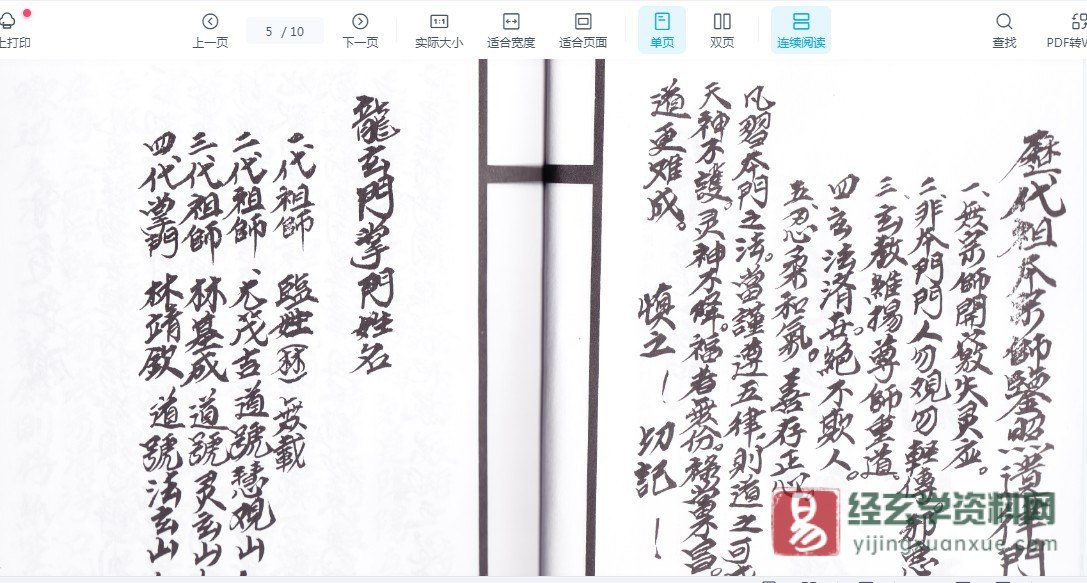 上打印
上一页
5 / 10
下一页
实际大小
适合宽度
适合页面
单页
双页
连续阅读
查找
PDF转W
歷代祖本宗師鑒照譜律門
一、無
師開
失灵应。
二、非本門門人勿覌勿軽傳
三、玄教雖揚尊師重道。
四、玄法济世絕不欺人。
五、忍柔和氣。善存正心
凡習本門之法。當謹遵五律,則道之可
天神不護。灵神不降。福者無份。
道更难成。
慎之!切記!
龍玄門掌門姓名
一代祖師 臨姓(林)無載
二代祖師 元茂吉道號慧覌山
三代祖師 林基成道號灵玄山
四代掌門 林靖欽道號法玄山
易
经玄学资料网
yijingxuanxue.com